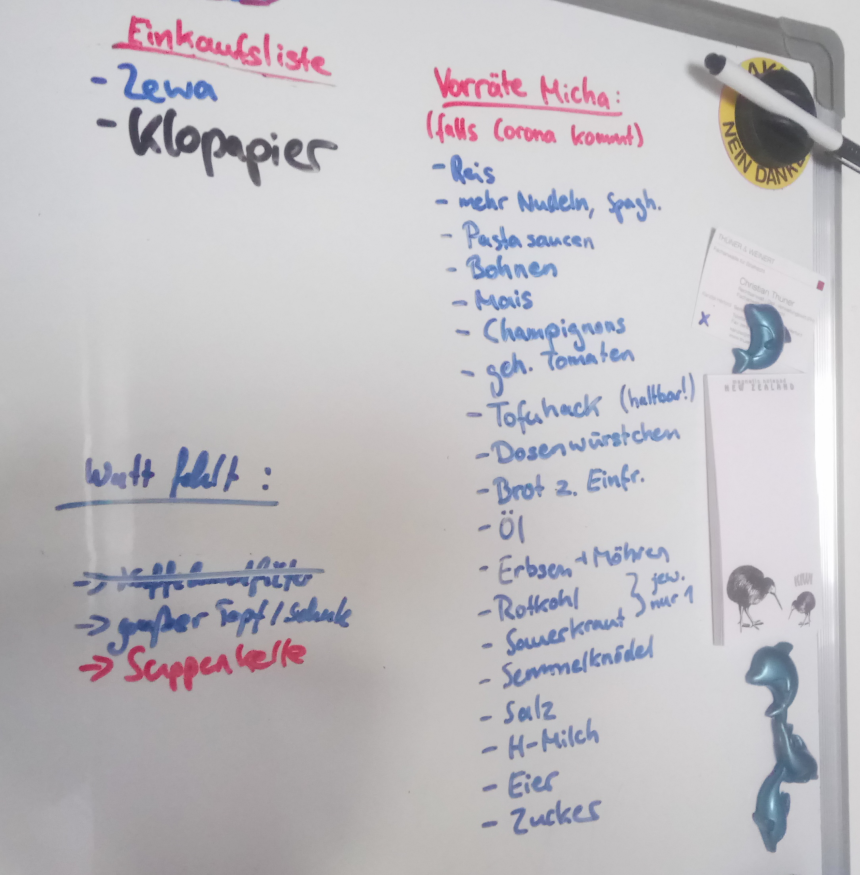 Einkaufsliste
- Zewa
- Klopapier
Watt fehlt:
→ großer Topf / Schale
→ Suppenkelle
Vorräte Micha:
(falls Corona kommt)
- Reis
- mehr Nudeln, Spagh.
- Pastasaucen
- Bohnen
- Mais
- Champignons
- geh. Tomaten
- Tofuhack (haltbar!)
- Dosenwürstchen
- Brot z. Einfr.
- Öl
- Erbsen + Möhren
- Rotkohl } jew.
- Sauerkraut nur 1
- Semmelknödel
- Salz
- H-Milch
- Eier
- Zucker
NEIN DANKE
Christian Thüner
NEW ZEALAND